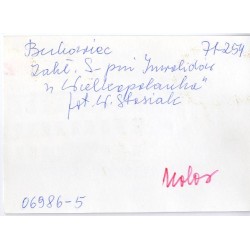 Bukowiec 71-254
Zakł. S-pni Inwalidów
"Wielkopolanka"
fot. W. Stasiak
Kolor
06986-5